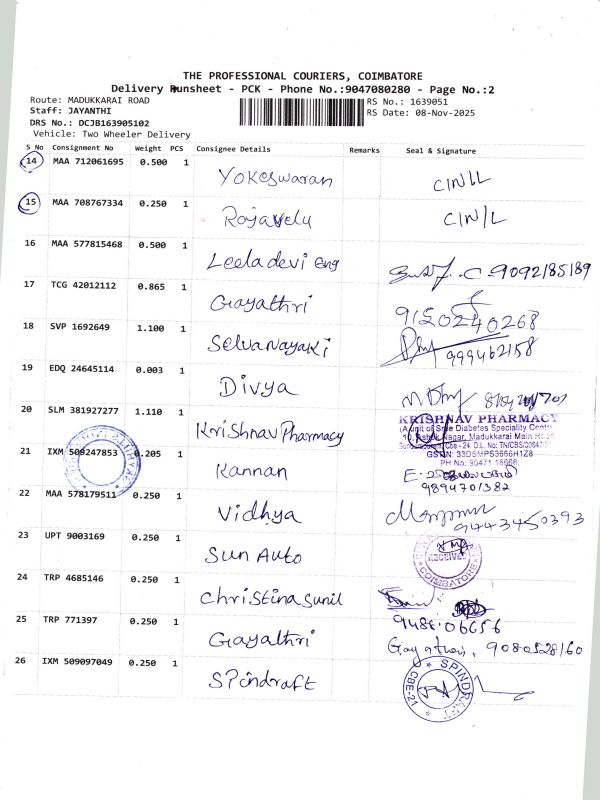 THE PROFESSIONAL COURIERS, COIMBATORE
Delivery Runsheet - PCK - Phone No.:9047080280 - Page No.:2
Route: MADUKKARAI ROAD
RS No.: 1639051
Staff: JAYANTHI
RS Date: 08-Nov-2025
DRS No.: DCJB163905102
Vehicle: Two Wheeler Delivery
S No Consignment No Weight PCS Consignee Details Remarks Seal & Signature
14 MAA 712061695 0.500 1 Yokeswaran CIN/L
15 MAA 708767334 0.250 1 Rojavelu CIN/L
16 MAA 577815468 0.500 1 Leeladevi eng 9092185189
17 TCG 42012112 0.865 1 Gayathri 9150240268
18 SVP 1692649 1.100 1 Selvanayaki 999462158
19 EDQ 24645114 0.003 1 Divya
20 SLM 381927277 1.110 1 Krishnav Pharmacy
KRISHNAV PHARMACY
(A unit of Sree Diabetes Speciality Centre
10, Ashok Nagar, Madukkarai Main Road
GSTN: 33DSMPS3666H1Z8
PH No: 90471 16666
21 IXM 509247853 0.205 1 Kannan
9894701382
22 MAA 578179511 0.250 1 Vidhya 9443450393
23 UPT 9003169 0.250 1 Sun Auto
RECEIVED
COIMBATORE
24 TRP 4685146 0.250 1 Christina sunil
9488106656
25 TRP 771397 0.250 1 Gayathri Gayathri, 9080528160
26 IXM 509097049 0.250 1 Spindraft
SPINDRAFT
CBE-21